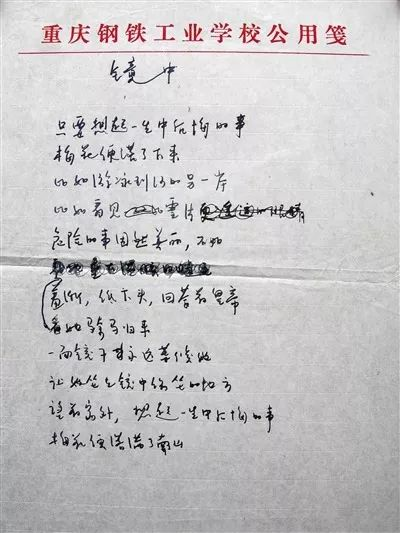 重庆钢铁工业学校公用笺
镜中
只要想起一生中后悔的事
梅花便落了下来
比如游泳到河的另一岸
比如看见的雪片
危险的事固然美丽，不如
羞惭，低下头，回答着皇帝
看她骑马归来
一面镜子永远等候她
让她坐到镜中常坐的地方
望着窗外，想起一生中后悔的事
梅花便落满了南山